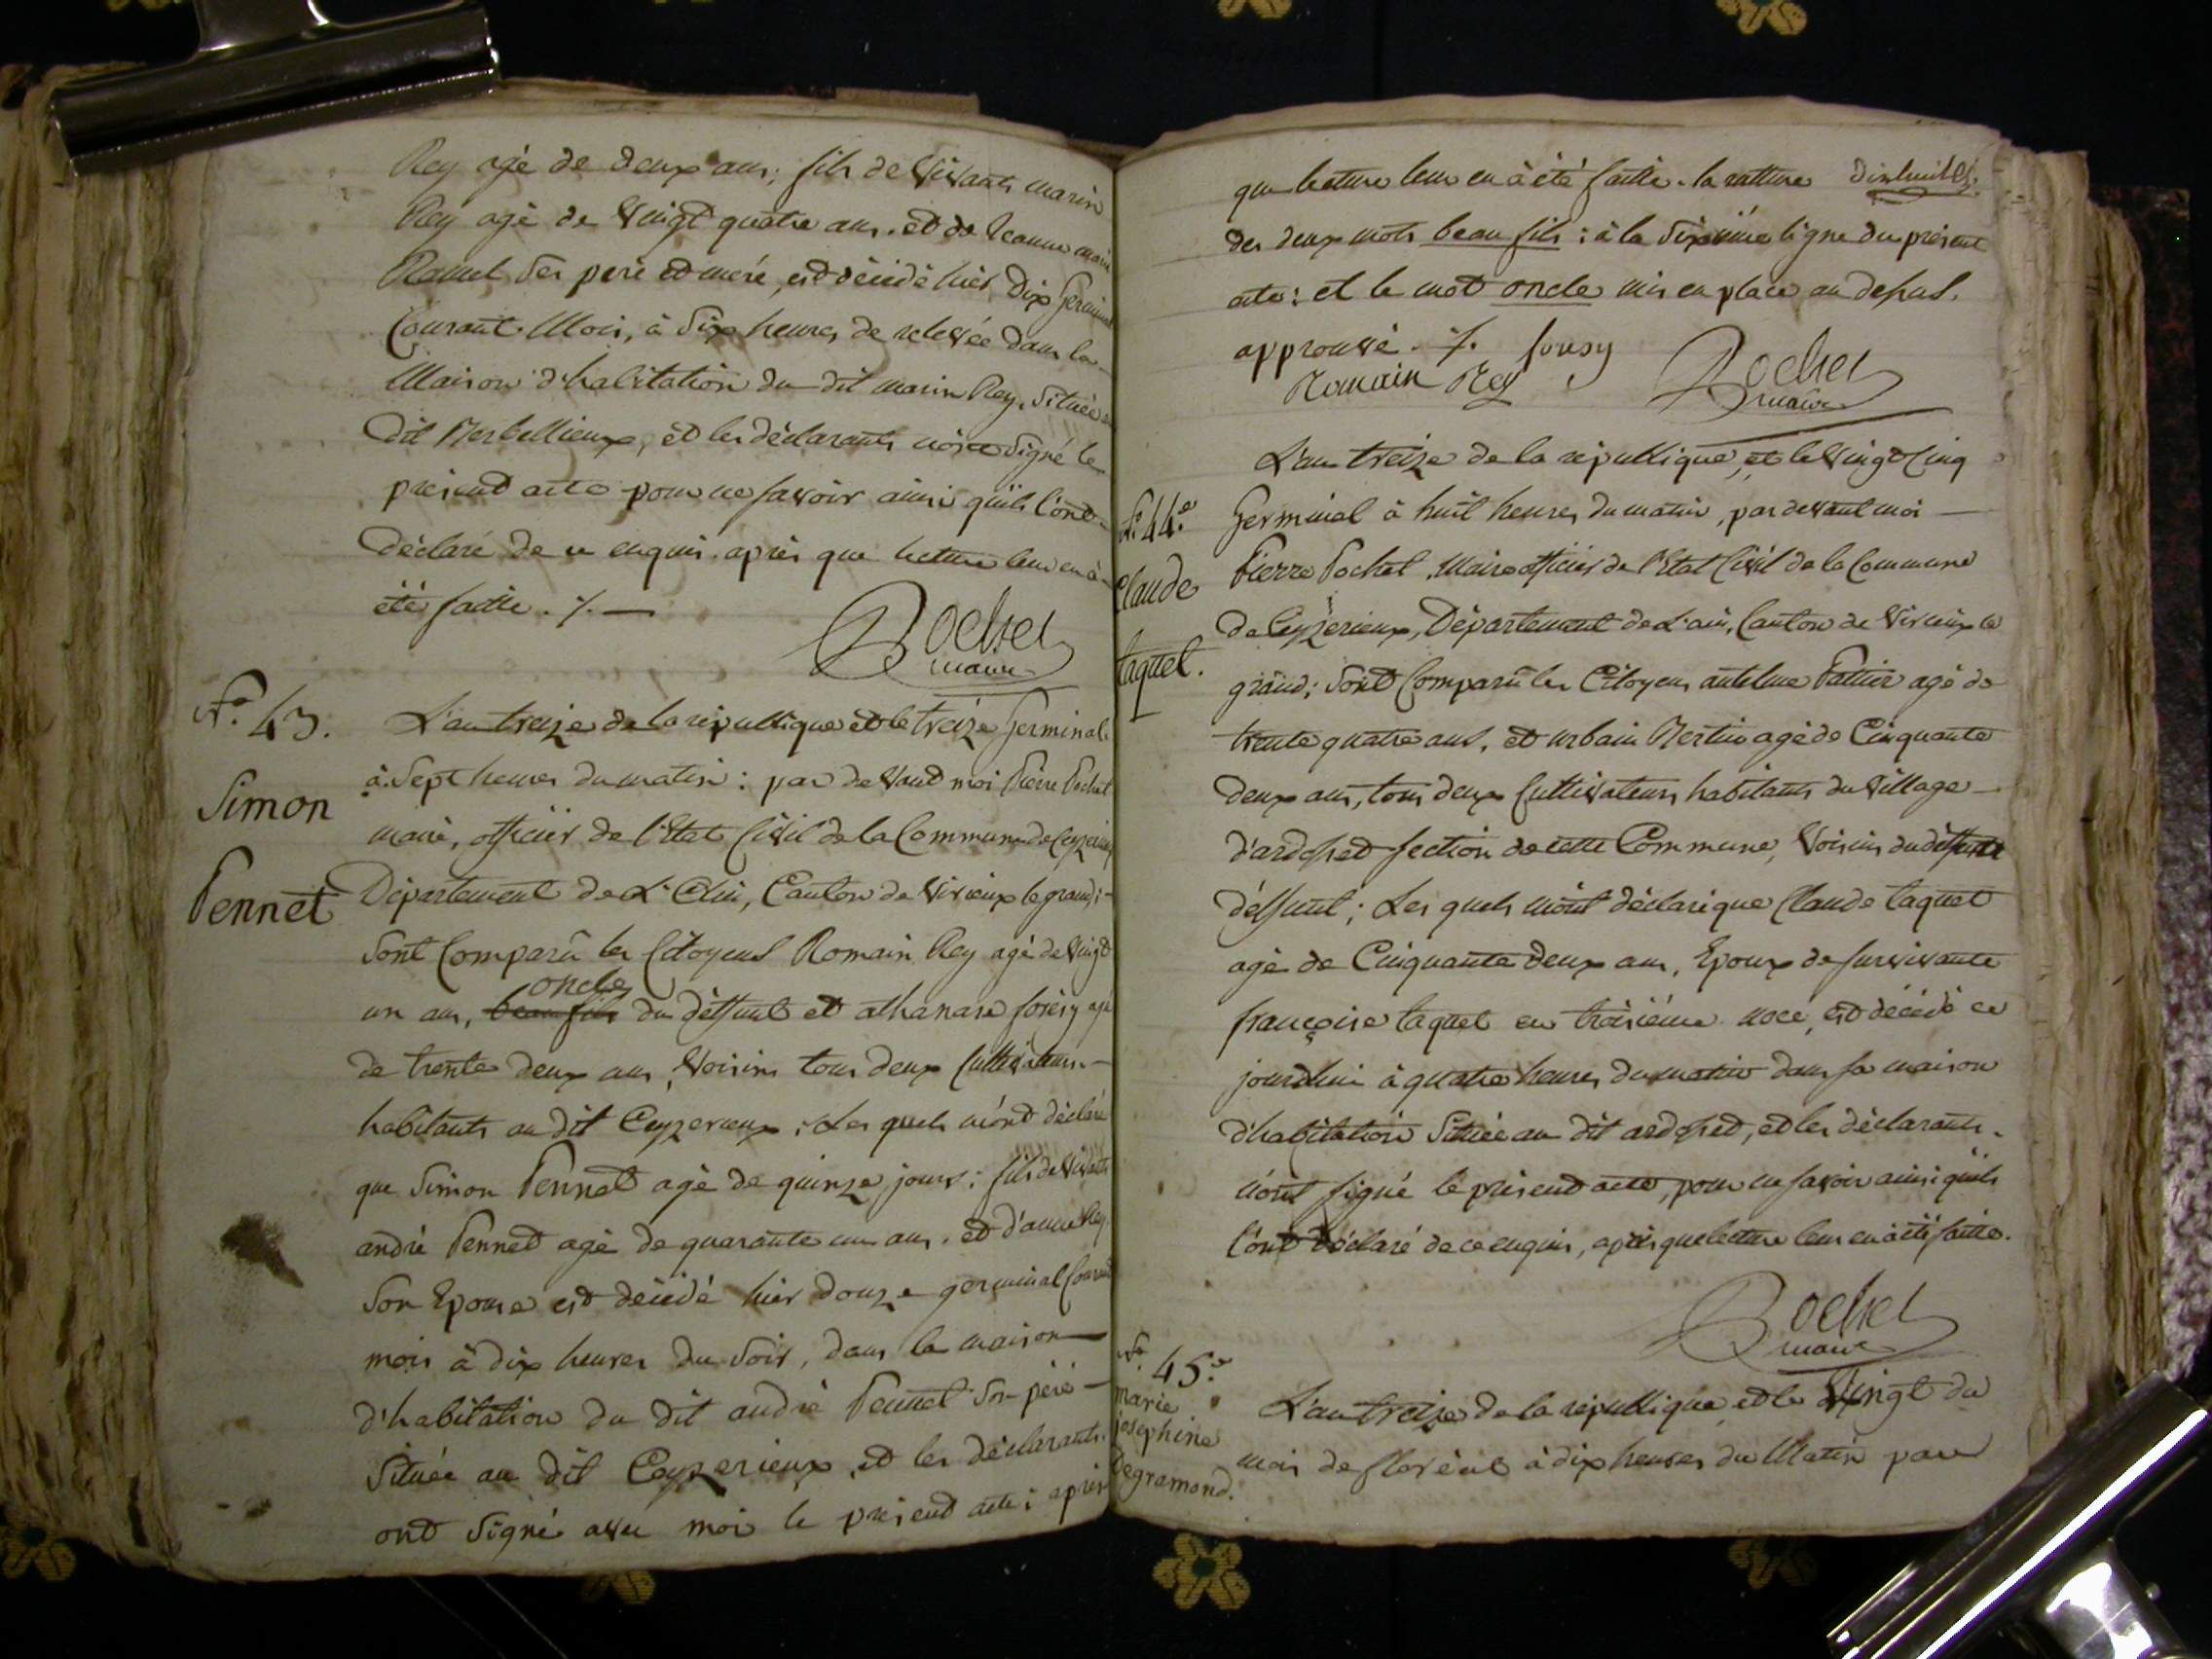 Rey agé de deux ans; fils de vivants marin
Rey agé de vingt quatre ans. et de Jeanne marie
Ramel ses pere et mere, est décédé hier dix Germinal
Courant Mois, à six heures de relevée dans la
Maison d'habitation du dit marin Rey, située
dit et les déclarants n'ont signé le
présent acte pour ne savoir ainsi qu'ils l'ont
déclaré de ce enquis après que lecture leur en à
été faitte. ./.
Pochet
maire
N.° 43.
Simon
Pennet
L'an treize de la république et le treize Germinal
à sept heures du matin: par devant moi Pierre Pochet
maire, officier de l'Etat Civil de la Commune de Ceyzerieux
Département de L'Ain, Canton de Virieux le grand;
sont Comparû les Citoyens Romain Rey agé de vingt
un ans, beau fils oncle du deffunt et athanase agé
de trente deux ans, voisins tous deux Cultivateurs
habitants au dit Ceyzerieux; Les quels m'ont déclaré
que Simon Pennet agé de quinze jours; fils de vivants
andré Pennet agé de quarante un ans. et d'anne Rey
son Epouse est décédé hier douze germinal Courant
mois à dix heures du soir, dans la maison
d'habitation du dit andré Pennet son père
située au dit Ceyzerieux, et les déclarants
ont signé avec moi le présent acte; après
que lecture leur en à été faitte. la rature
des deux mots beau fils; à la sixième ligne du présent
acte; et le mot oncle mis en place au dessus.
approuvé. ./.
Romain Rey
Pochet
maire
N.° 44.e
Claude
taquet.
L'an treize de la république, et le vingt Cinq
Germinal à huit heures du matin, par devant moi
Pierre Pochet, Maire officier de l'Etat Civil de la Commune
de Ceyzerieux, Département de L'ain, Canton de Virieux le
grand; sont Comparû les Citoyens antelme agé de
trente quatre ans, et urbain agé de Cinquante
deux ans, tous deux Cultivateurs habitants du village
d'ardosset section de cette Commune, voisins du
deffunt; Les quels m'ont déclaré que Claude taquet
agé de Cinquante deux ans, Epoux de survivante
françoise taquet en troisième noce, est décédé ce
jourdhui à quatre heures du matin dans sa maison
d'habitation située au dit ardosset, et les déclarants
n'ont signé le présent acte, pour ne savoir ainsi qu'ils
l'ont déclaré de ce enquis, après que lecture leur en à été faitte.
Pochet
maire
N.° 45.e
marie
josephine
degramond.
L'an treize de la république et le vingt du
mois de floréal à dix heures du Matin par